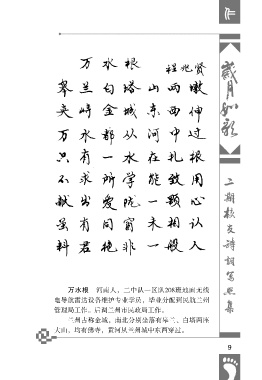 万水根
程兆贤
皋兰白塔山两墩
夹峙金城东西伸
万水都从河中过
只有一水在扎根
不求所学能致用
献出爱院一颗心
虽有同窗未相认
料君艳非一般人
万水根 河南人、二中队一区队208班地面无线
电导航雷达设备维护专业学员,毕业分配到民航兰州
管理局工作。后调兰州市民政局工作。
兰州古称金城,南北分别坐落有皋兰、白塔两座
大山,均有佛寺,黄河从兰州城中东西穿过。
岁月如歌
二期校友诗词写照集
9